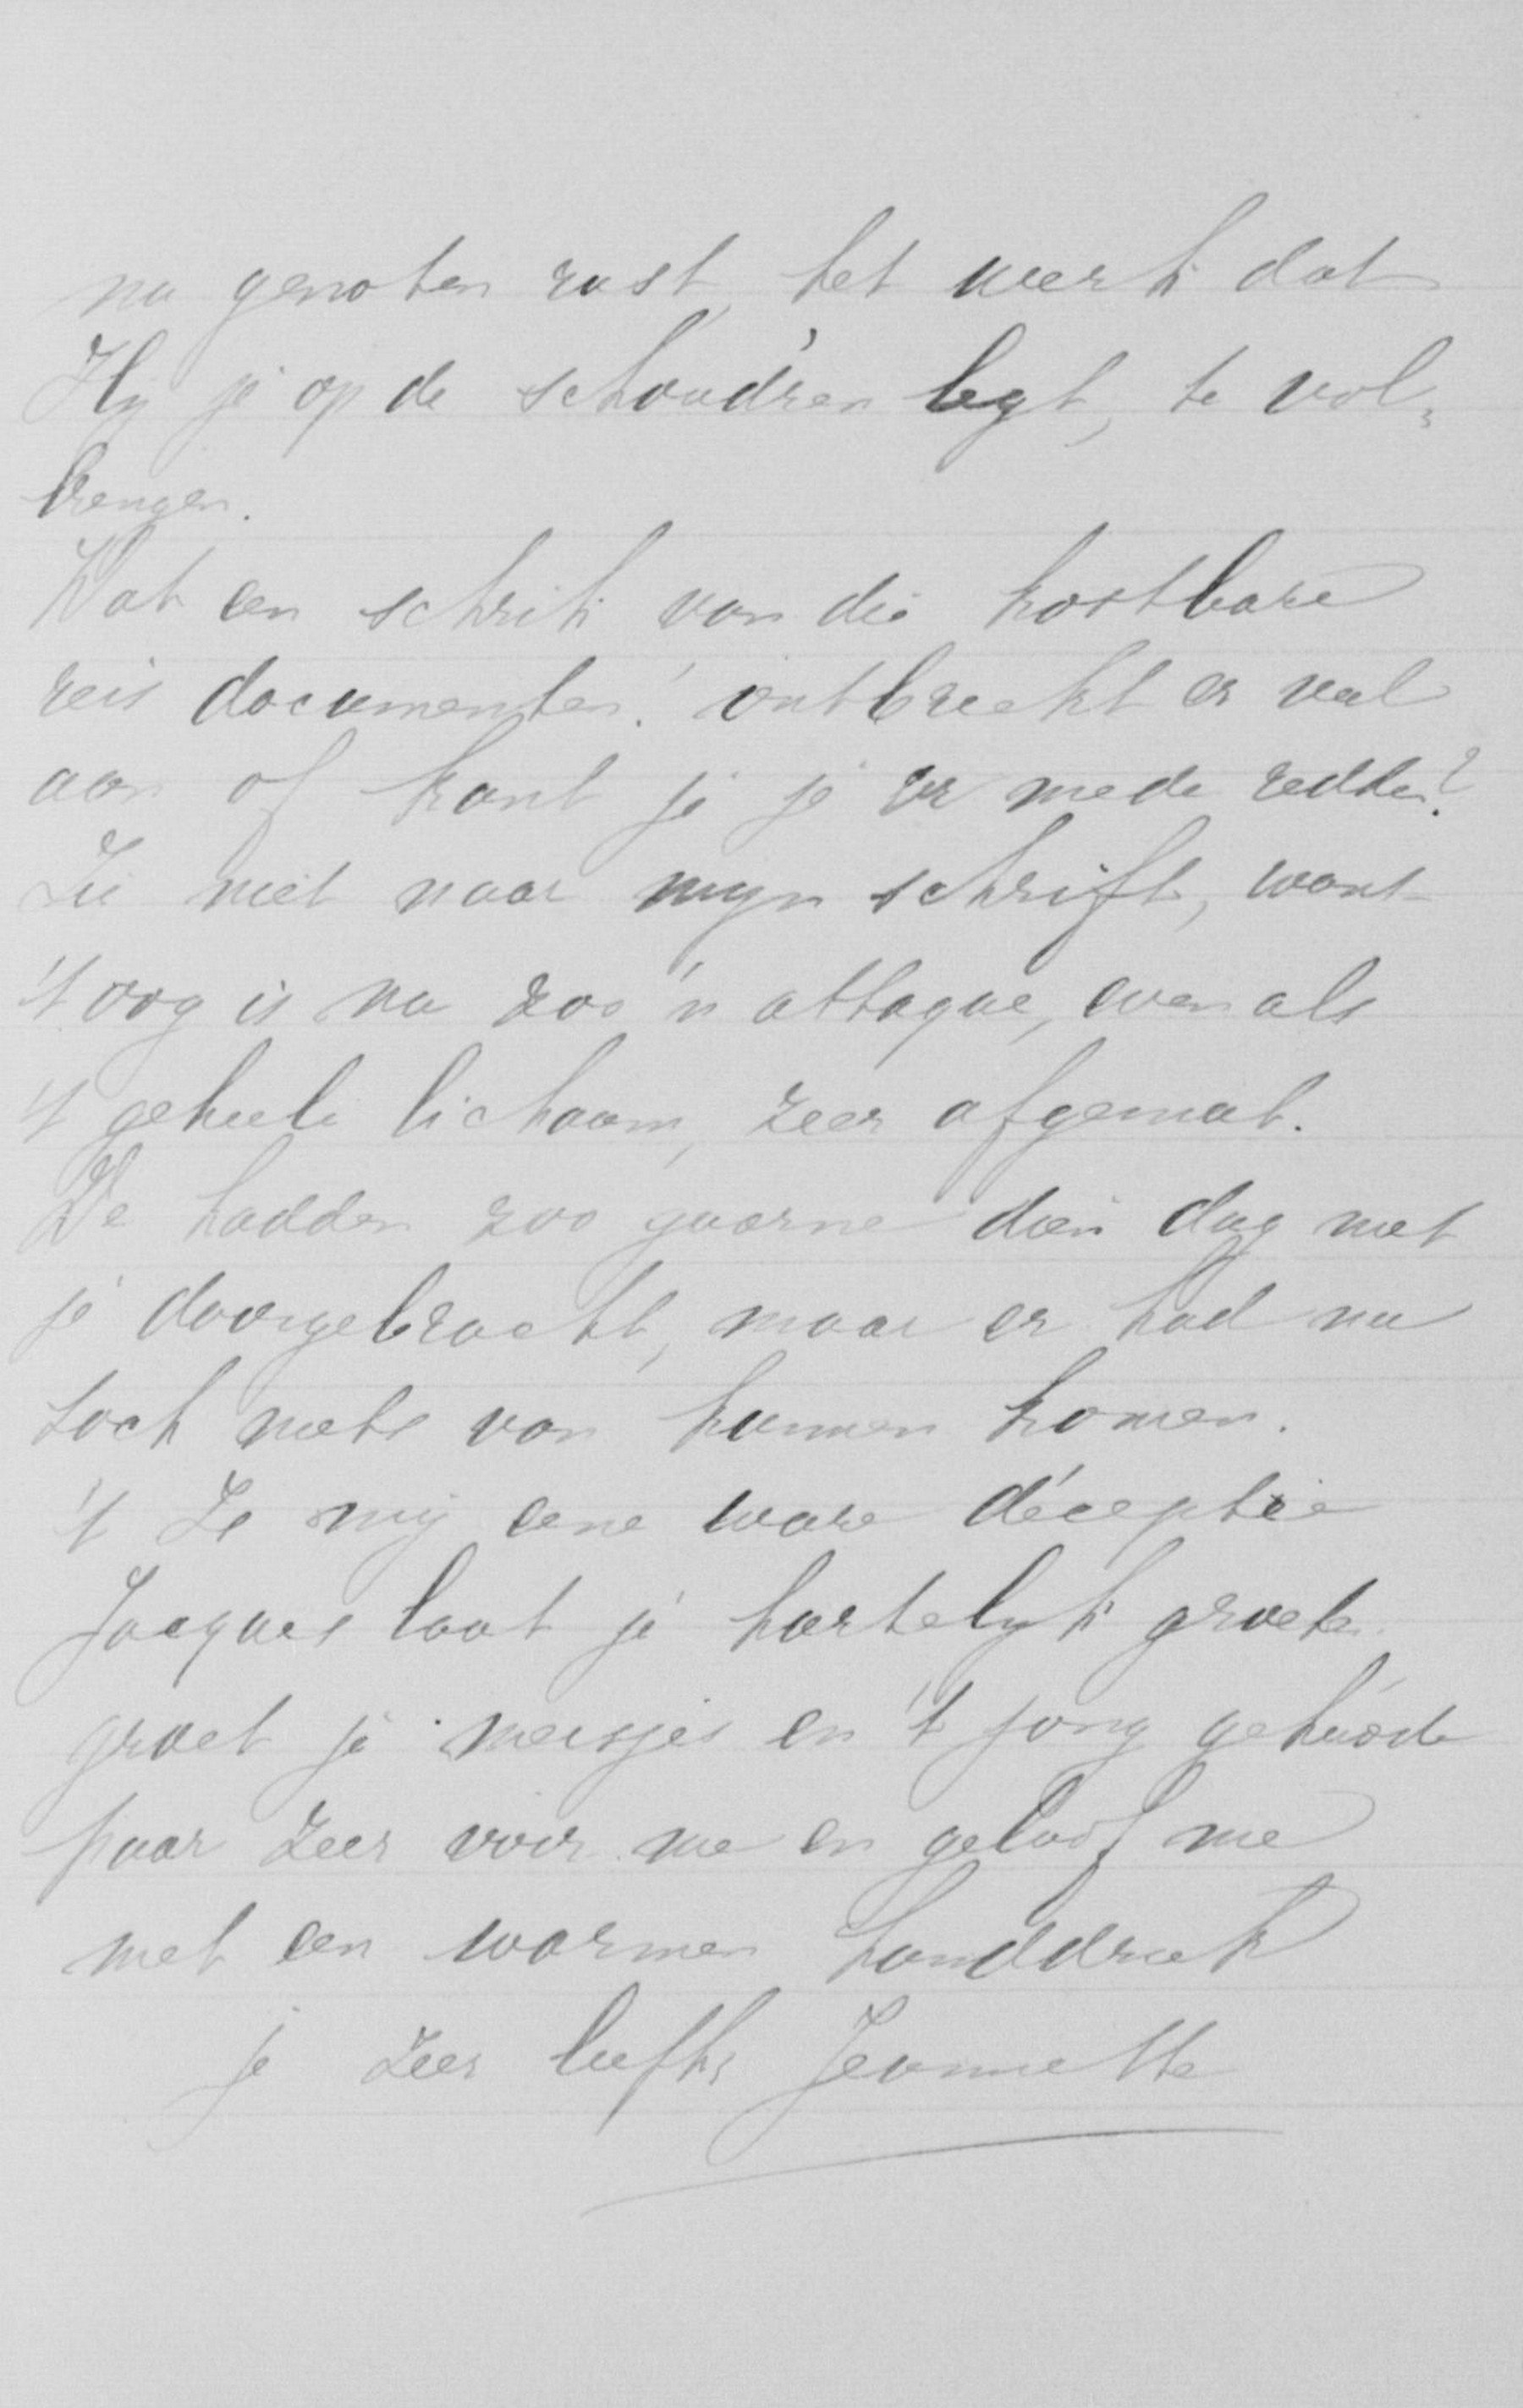 na genoten rust, het werk dat
Hy je op de schoud'ren legt, te vol-
brengen.
Wat een schrik van die kostbare
reis documenten! ontbreekt er veel
aan of kant je je er mede redden?
Zie niet naar myn schrift, want
't oog is na zoo'n attaque, even als
't geheele lichaam, zeer afgemat.
We hadden zoo gaarne dien dag met
je doorgebracht, maar er had nu
toch niets van kunnen komen.
't Is mij eene ware déceptie
Jacques laat je hartelyk groeten.
groet je meisjes en 't jong gehuwde
paar zeer voor me en geloof me
met een warmen handdruk
je zeer liefh. Jeannette